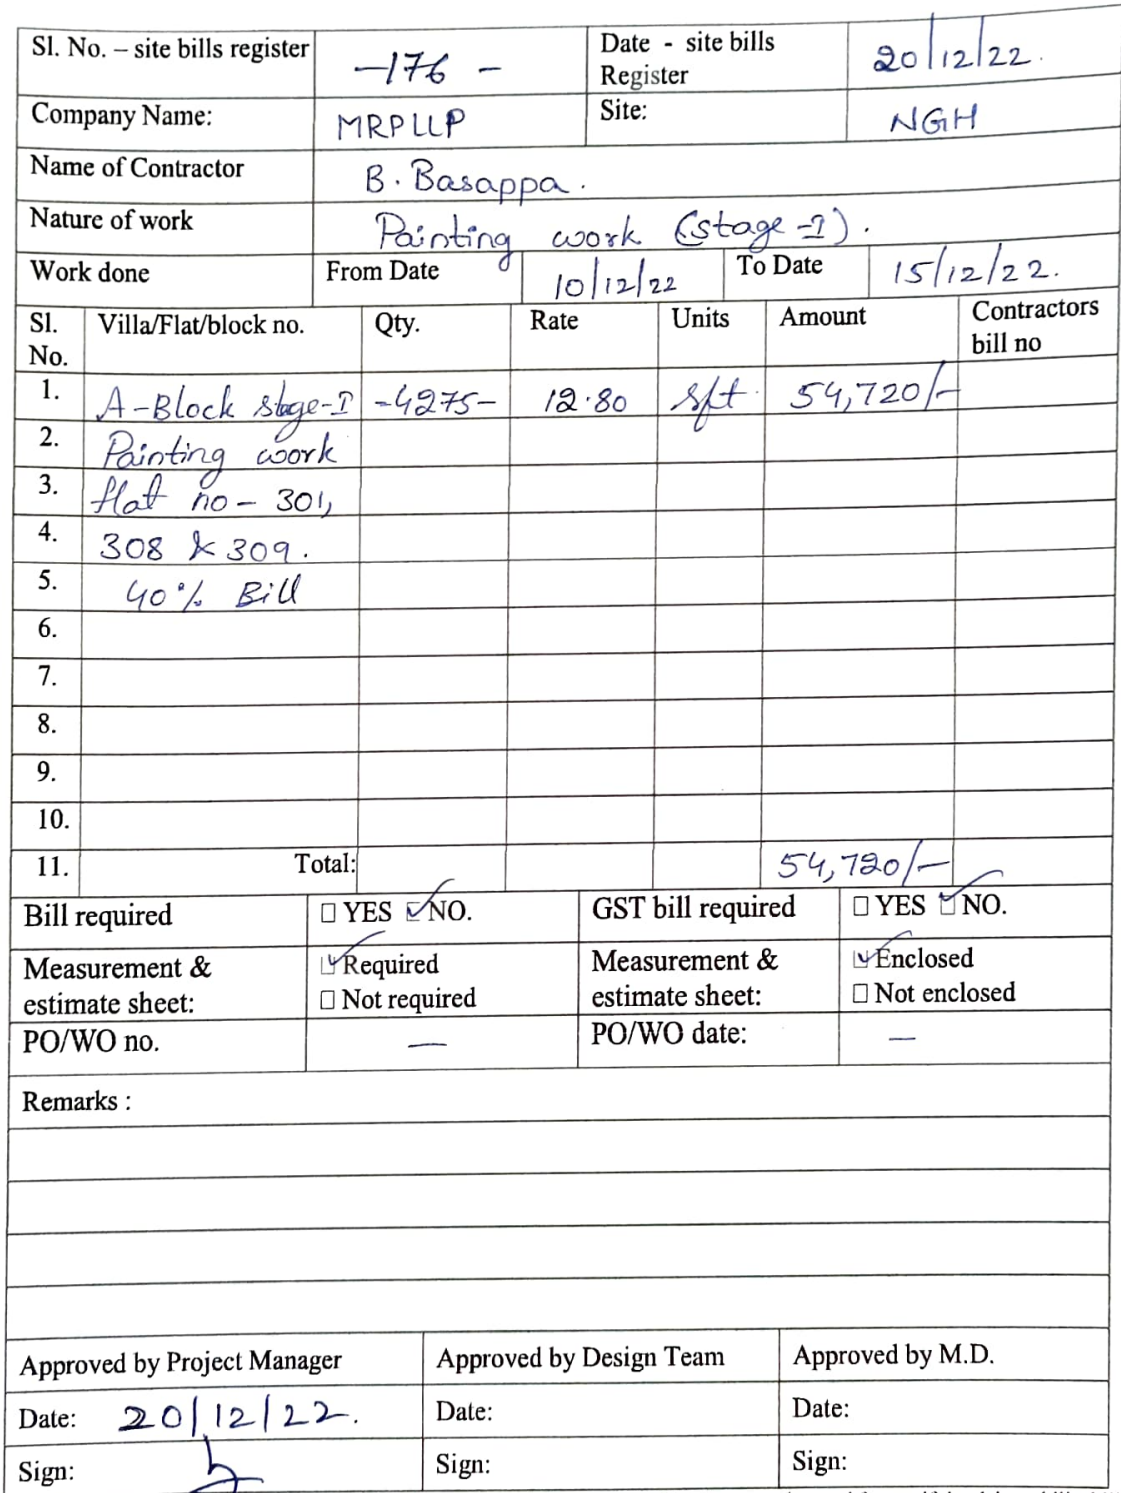 Sl. No. – site bills register -176 - Date - site bills Register 20/12/22.
Company Name: MRPLLP Site: NGH
Name of Contractor B. Basappa.
Nature of work Painting work (stage-I).
Work done From Date 10/12/22 To Date 15/12/22.
Sl. No. Villa/Flat/block no. Qty. Rate Units Amount Contractors bill no
1. A-Block stage-I -4275- 12.80 sft. 54,720/-
2. Painting work
3. flat no - 301,
4. 308 & 309.
5. 40% Bill
6.
7.
8.
9.
10.
11. Total: 54,720/-
Bill required □ YES ☑ NO. GST bill required □ YES ☑ NO.
Measurement & estimate sheet: ☑ Required □ Not required Measurement & estimate sheet: ☑ Enclosed □ Not enclosed
PO/WO no. — PO/WO date: —
Remarks :
Approved by Project Manager Approved by Design Team Approved by M.D.
Date: 20/12/22. Date: Date:
Sign: Sign: Sign: